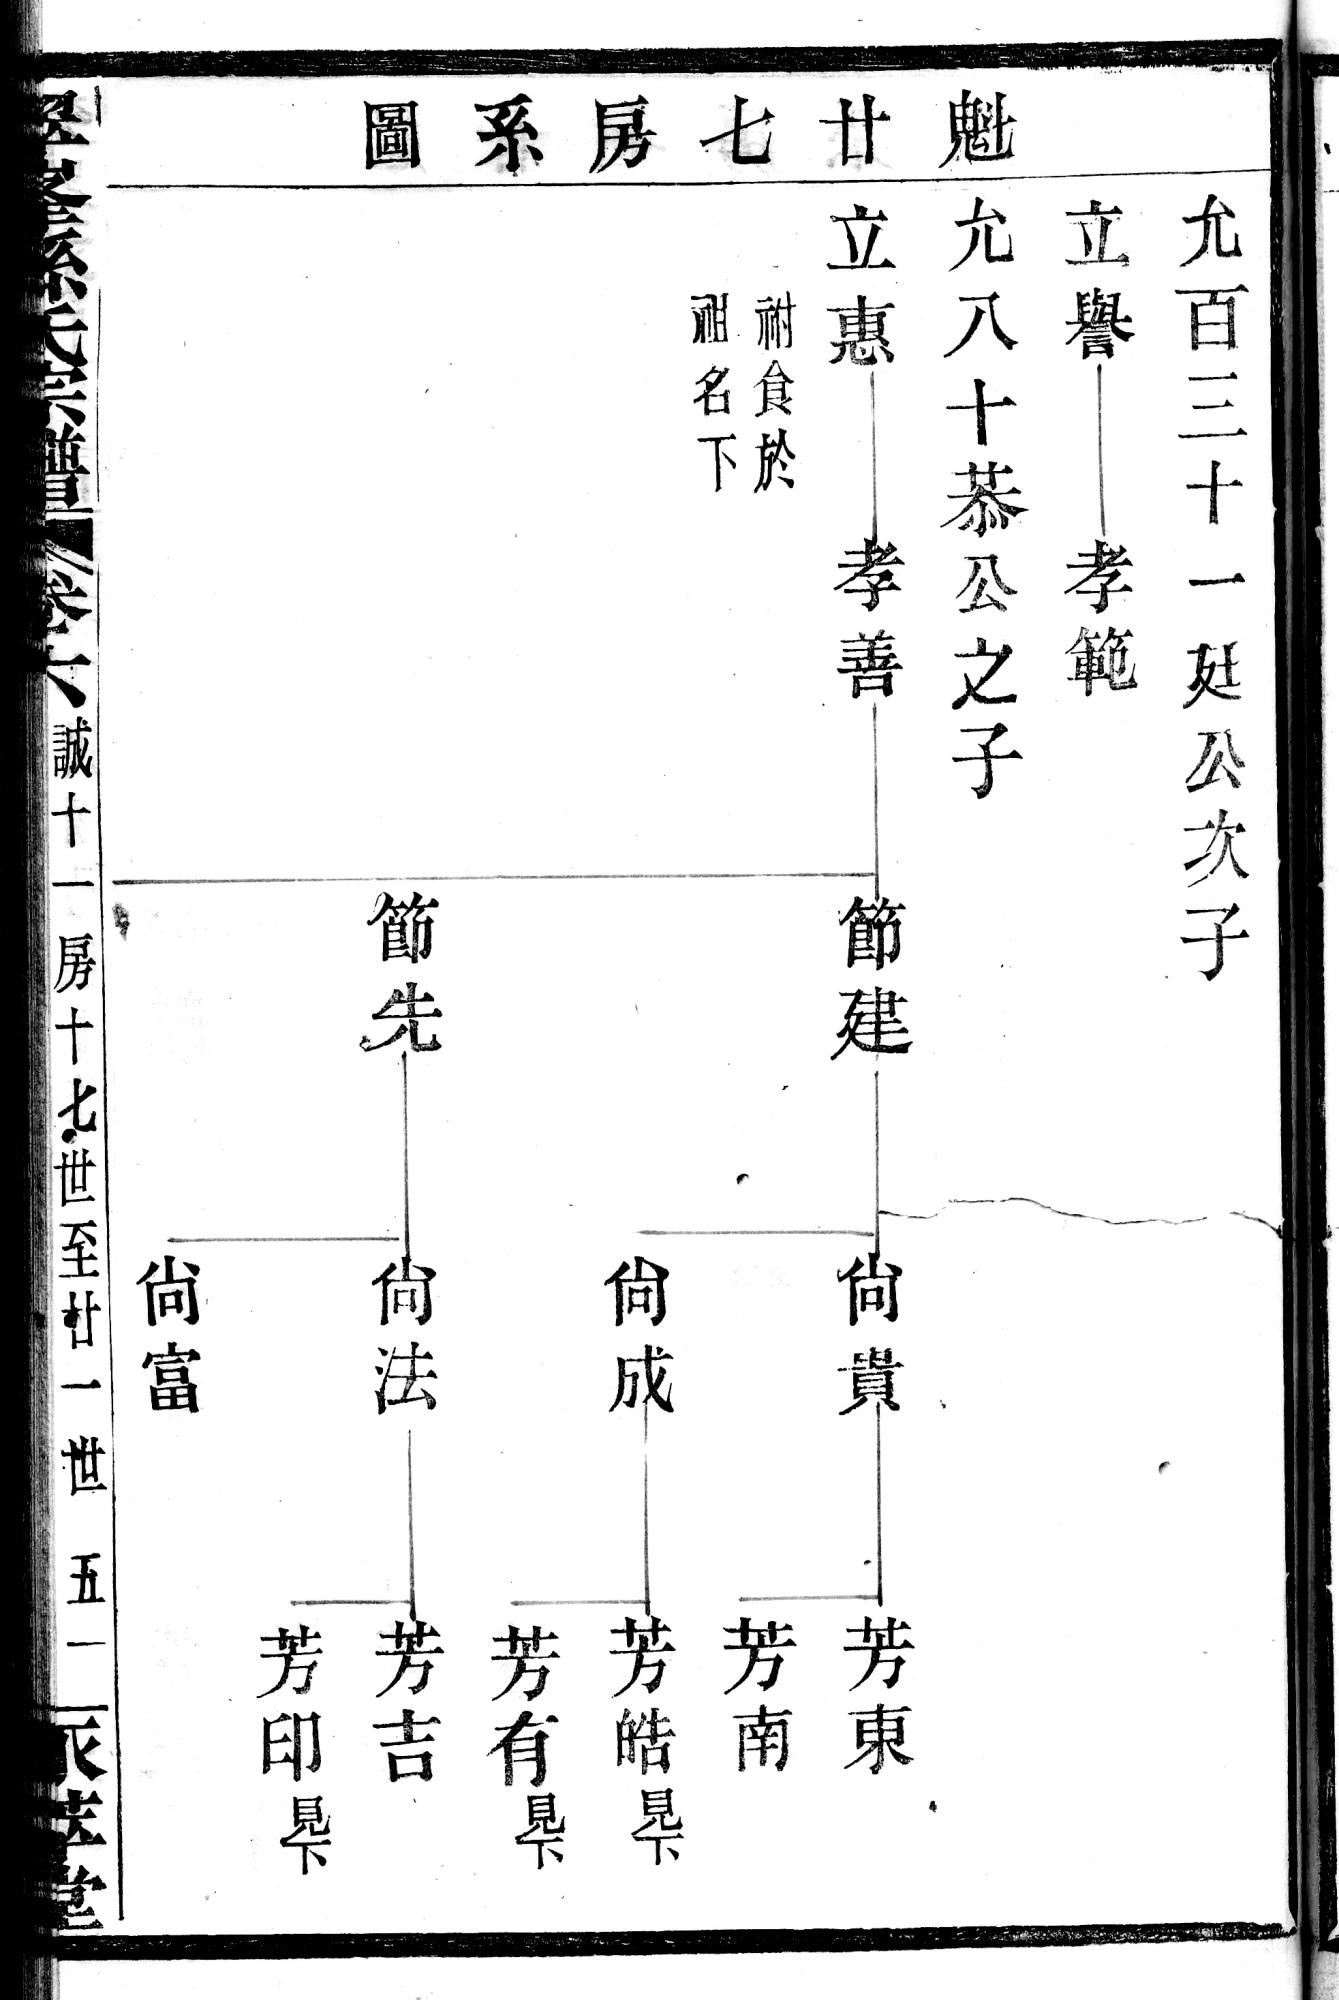 魁廿七房系圖
允百三十一廷公次子
立譽
孝範
允八十恭公之子
立惠
祔食於
祖名下
孝善
節建
節先
尙貴
尙成
尙法
尙富
芳東
芳南
芳皓見下
芳有見下
芳吉
芳印見下
孫氏宗譜
卷六
誠十一房十七世至廿一世
五一
堂